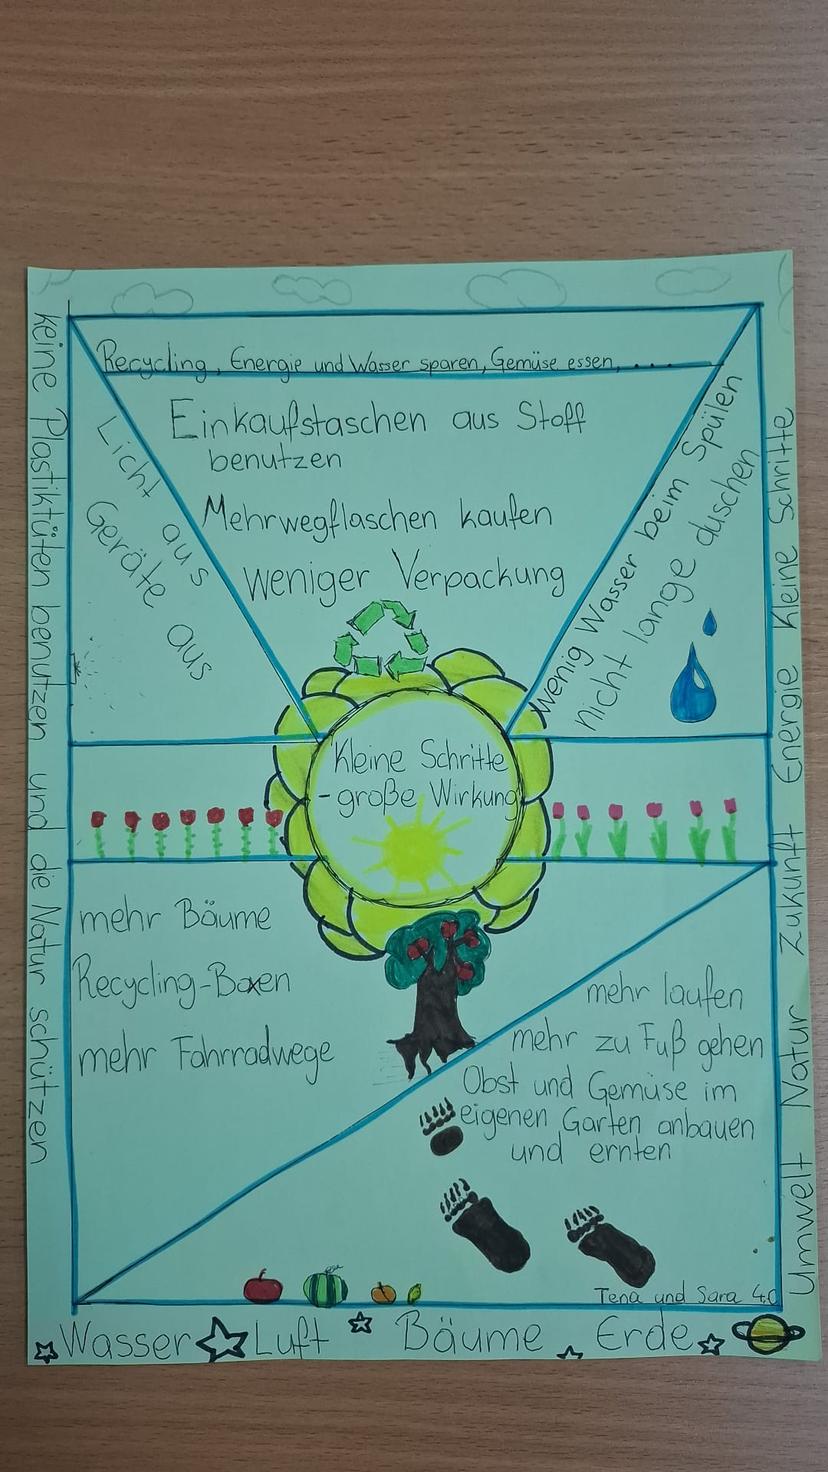 Recycling, Energie und Wasser sparen, Gemüse essen, ....
Einkaufstaschen aus Stoff
benutzen
Mehrwegflaschen kaufen
weniger Verpackung
Licht aus
Geräte aus
wenig Wasser beim Spülen
nicht lange duschen
Kleine Schritte
- große Wirkung
mehr Bäume
Recycling-Boxen
mehr Fahrradwege
mehr laufen
mehr zu Fuß gehen
Obst und Gemüse im
eigenen Garten anbauen
und ernten
Tena und Sara 4.c
keine Plastiktüten benutzen und die Natur schützen
Umwelt Natur Zukunft Energie kleine Schritte
Wasser Luft Bäume Erde